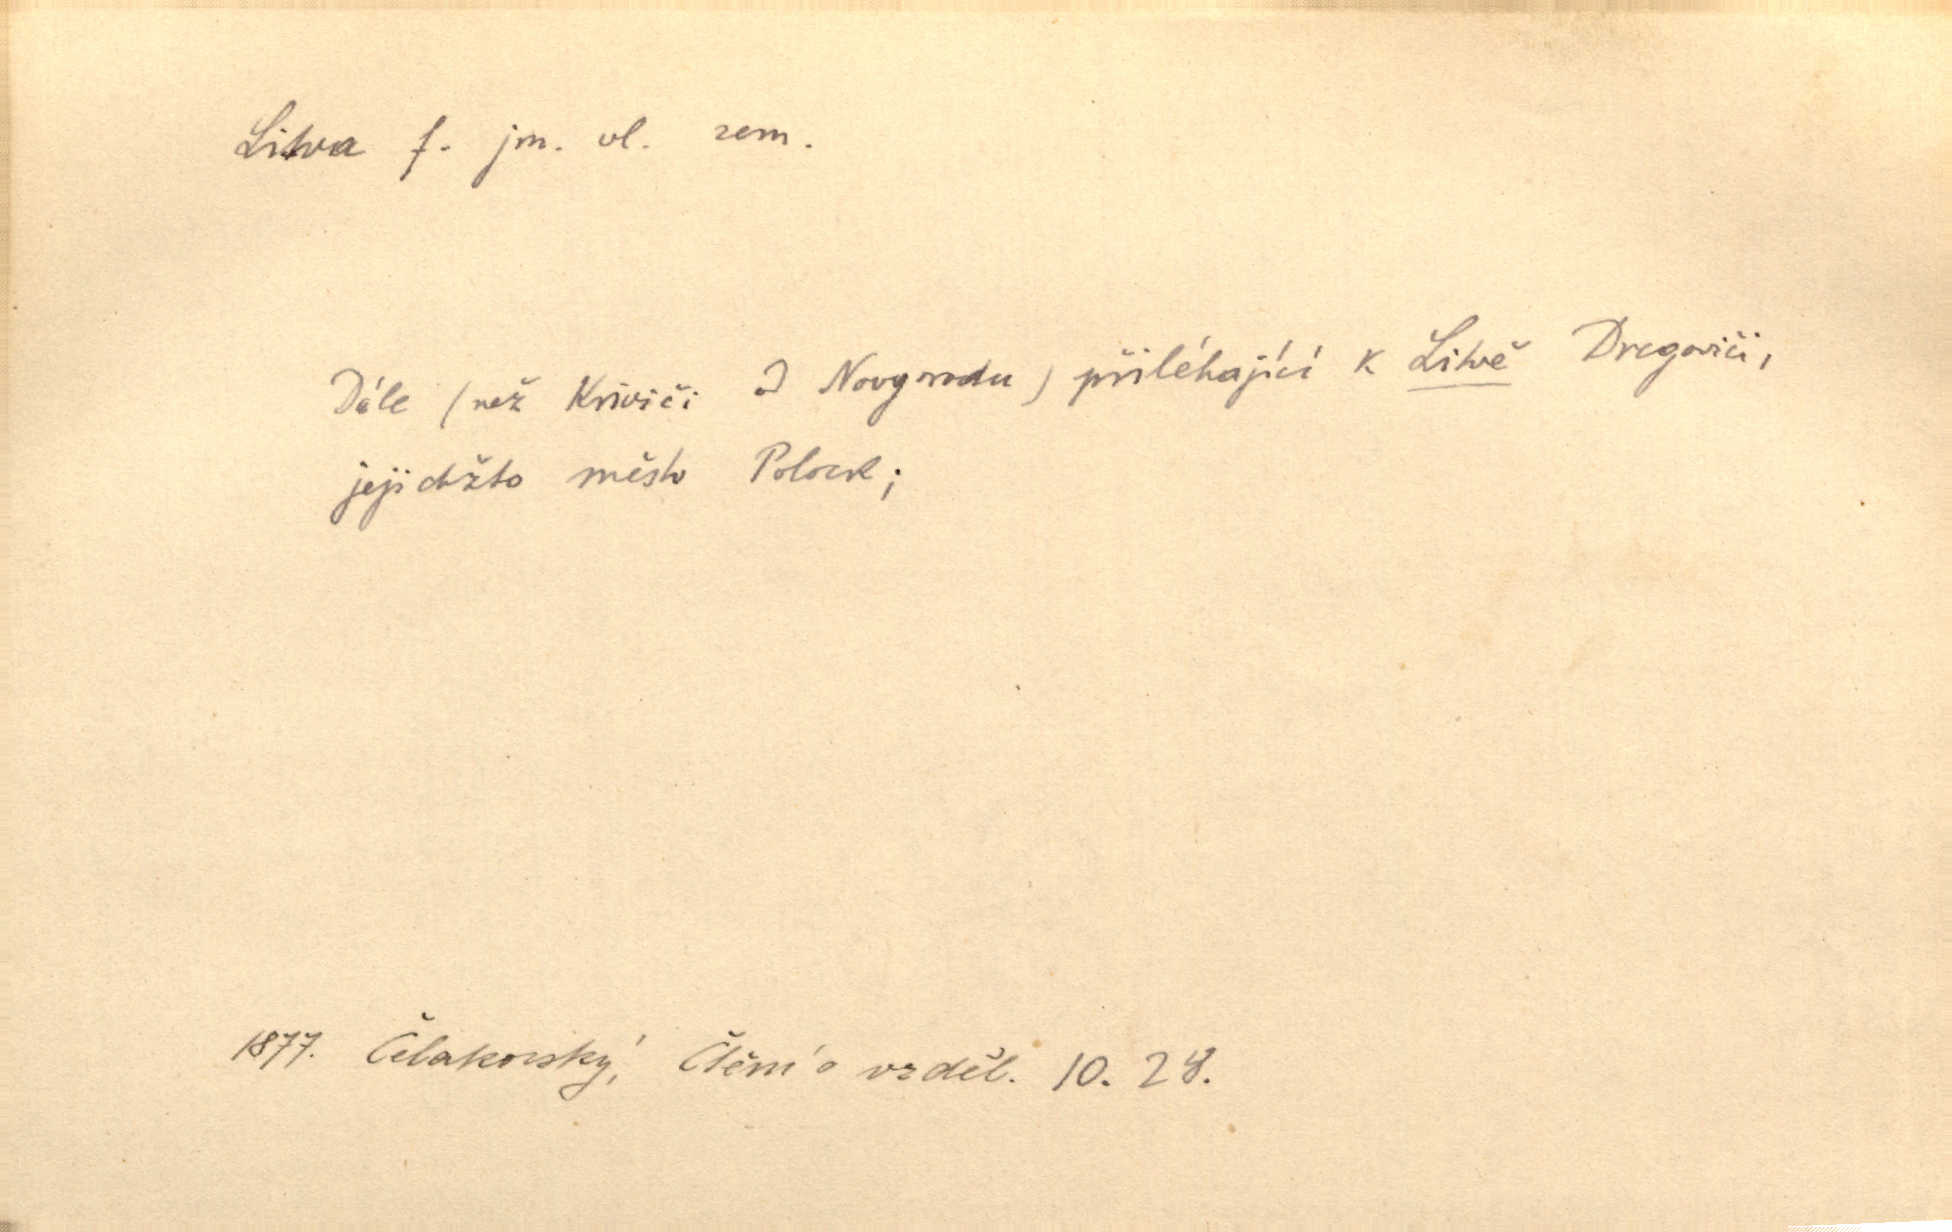 Litva f. jm. vl. zem.
Dále (než Kriviči od Novgorodu) přiléhající k Litvě Dregoviči,
jejichžto město Polock;
1877. Čelakovský, Čtění o vzděl. 10. 28.